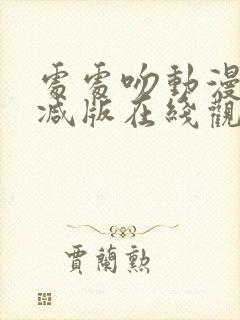 處處吻動漫
減版在綫觀
賈蘭勲